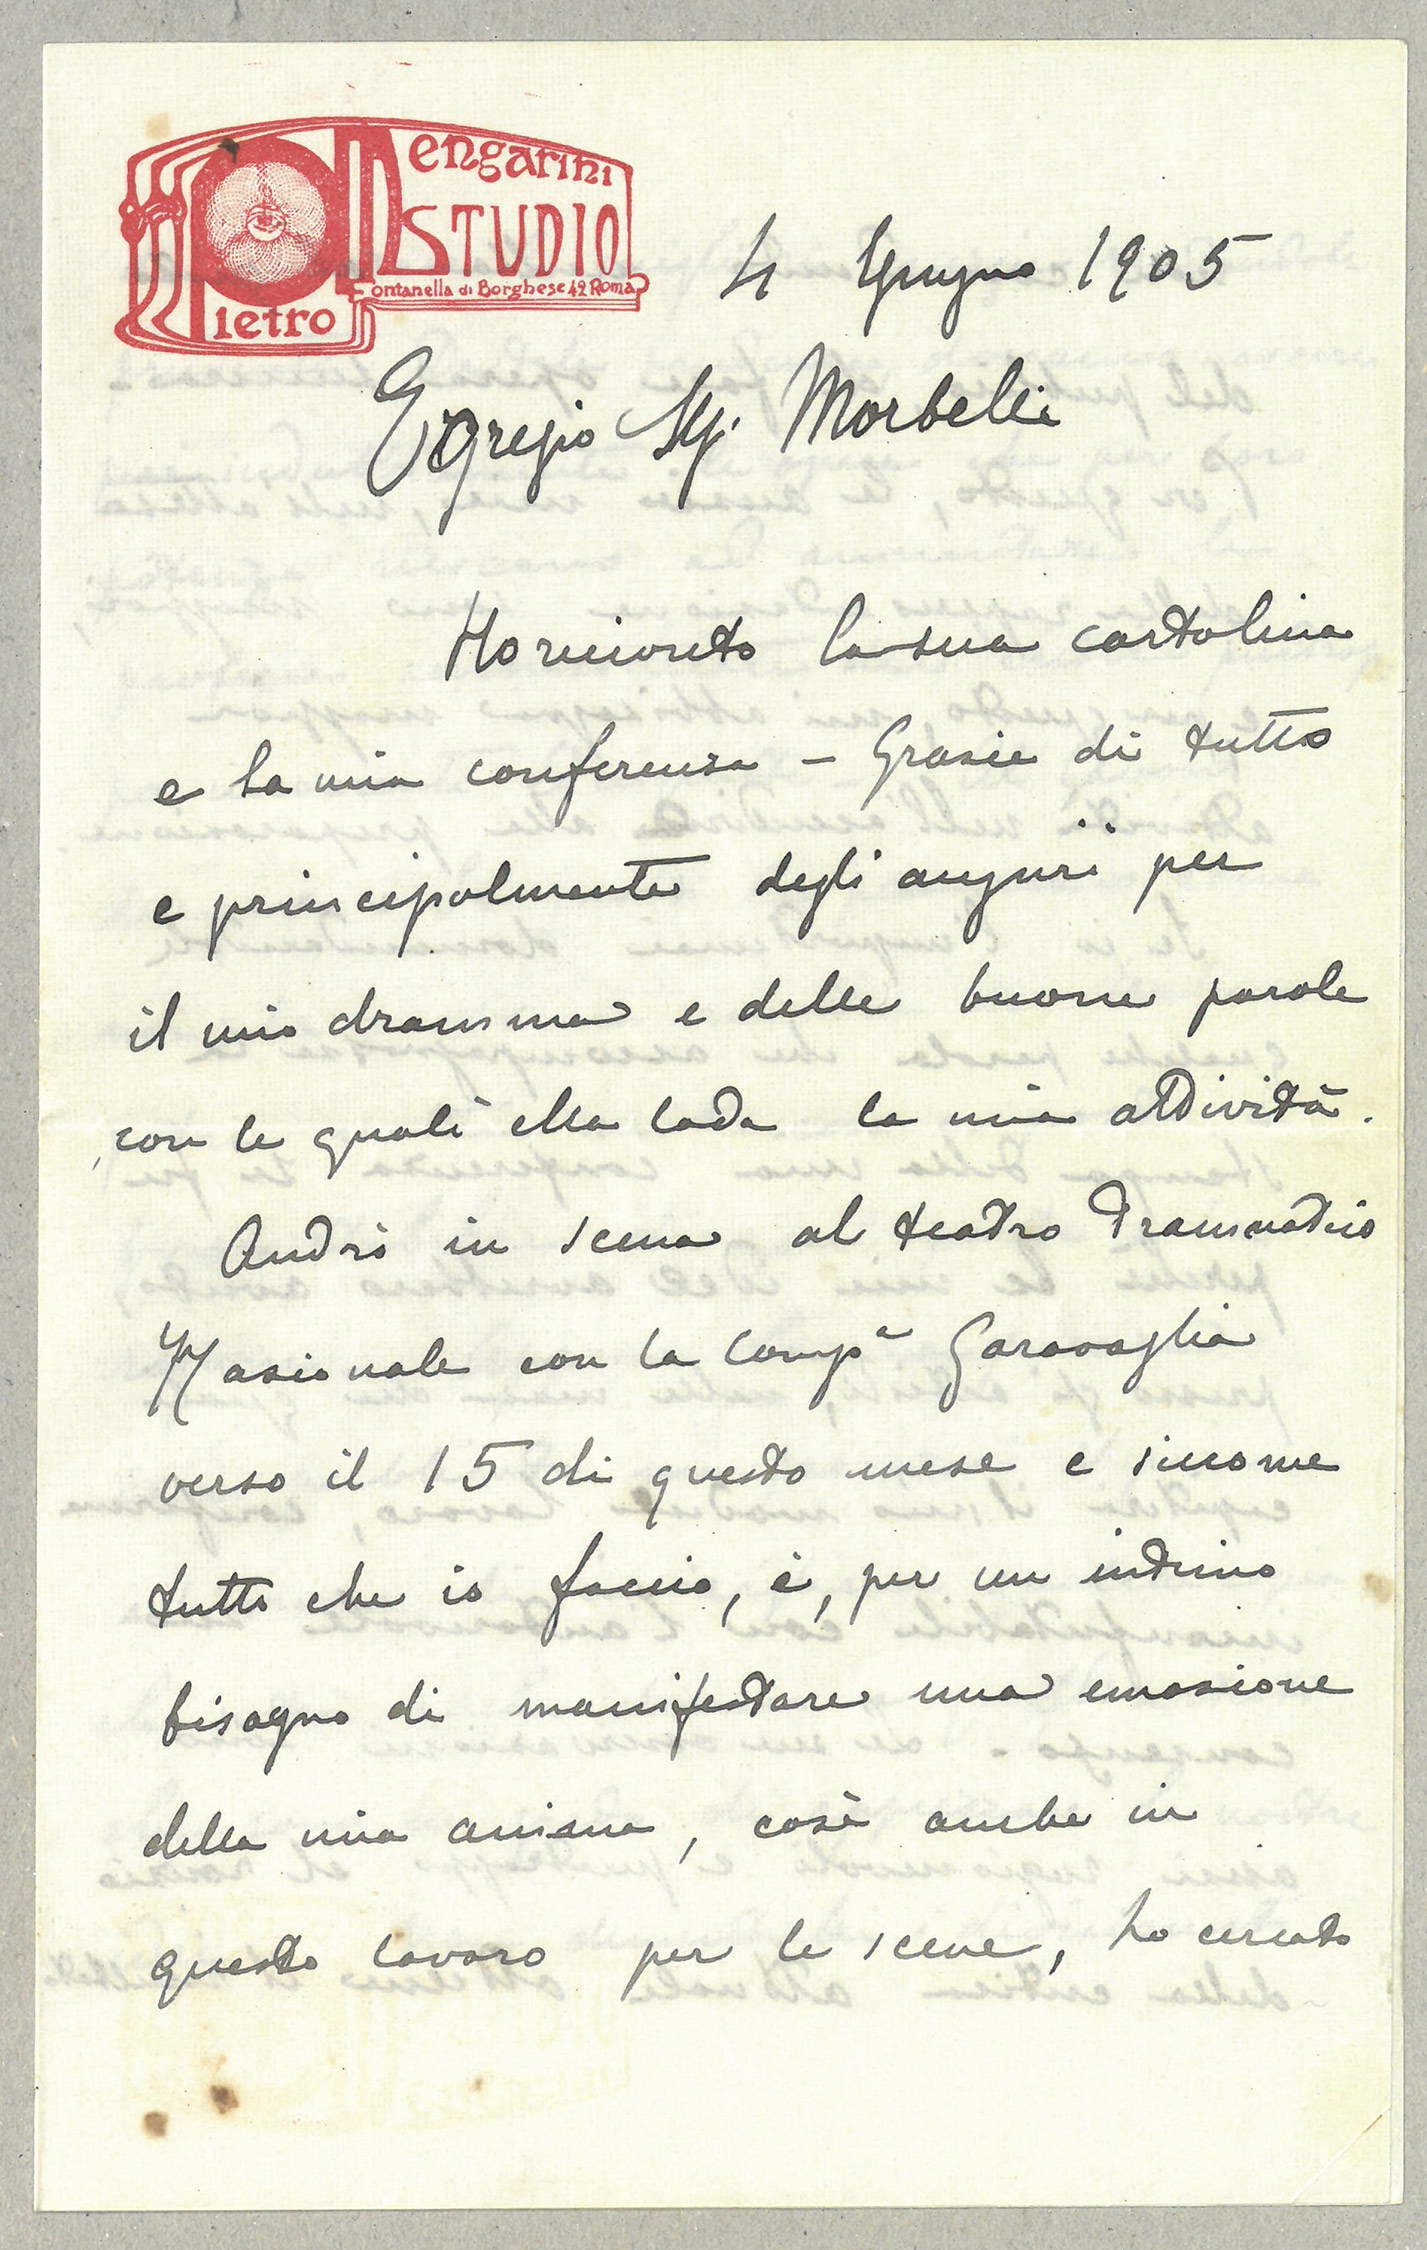 Mengarini
STUDIO
Fontanella di Borghese 42 Roma
Pietro
4 Giugno 1905
Egregio Sig. Morbelli
Ho ricevuto la sua cartolina
e la mia conferenza – Grazie di tutto
e principalmente degli auguri per
il mio dramma e delle buone parole
con le quali ella loda la mia attività.
Andrò in scena al teatro Drammatico
Nazionale con la Comp.a Garavaglia
verso il 15 di questo mese e siccome
tutto che io faccio, è, per un intimo
bisogno di manifestare una emozione
della mia anima, così anche in
questo lavoro per le scene, ho cercato